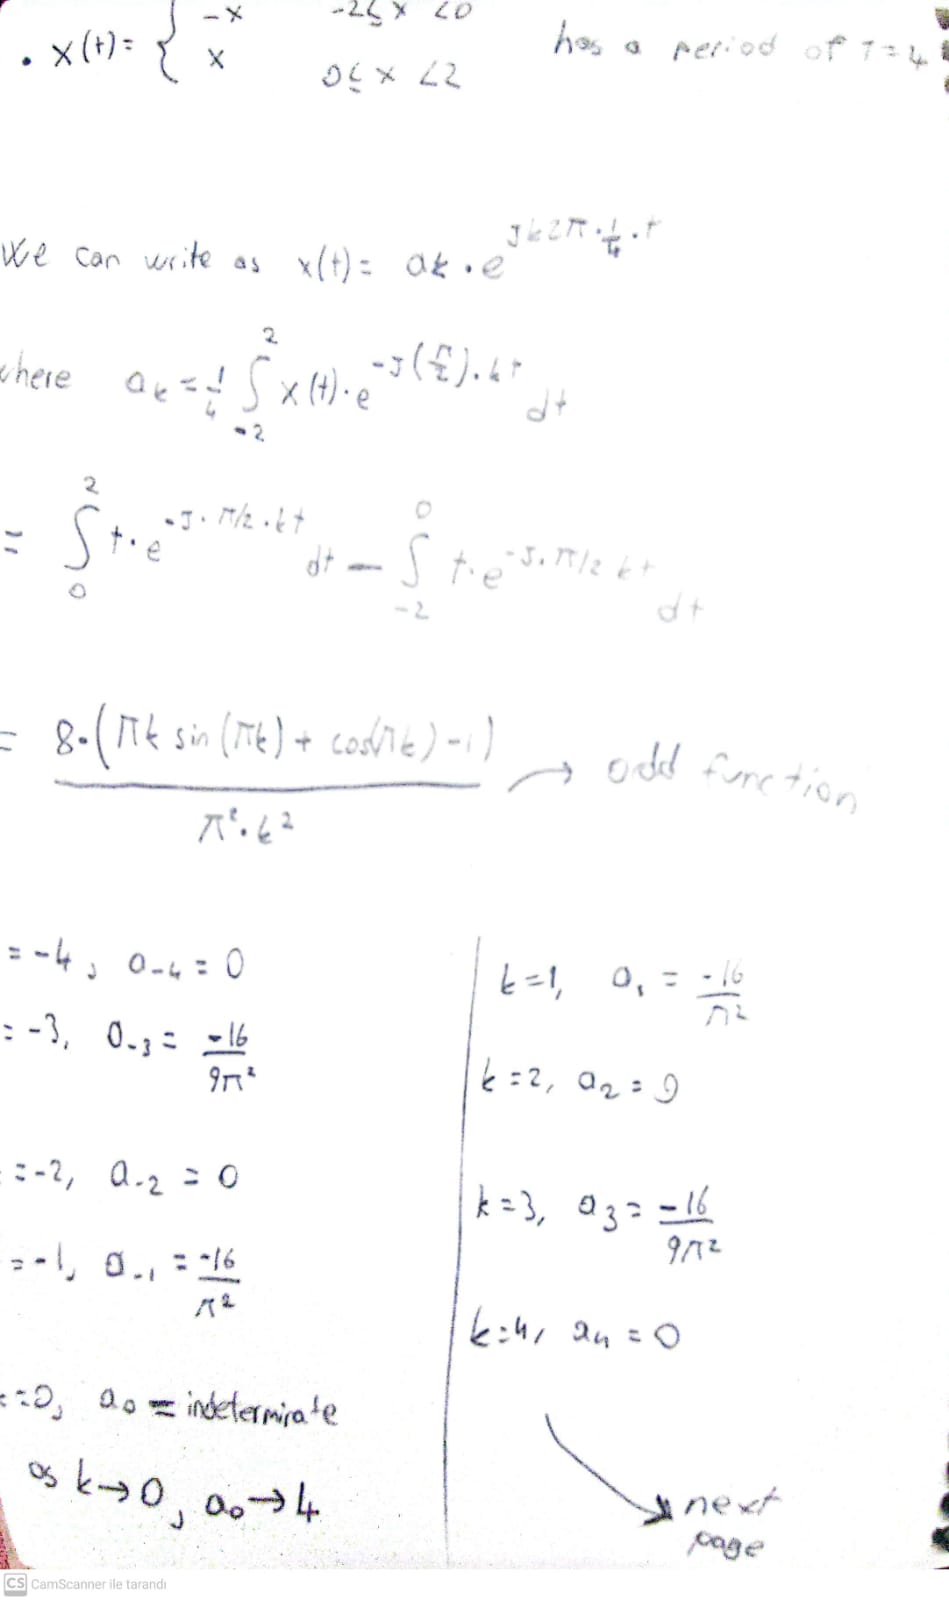 . x(t) = { -x -2≤ x <0
x 0≤ x <2 has a period of T=4
We can write as x(t) = ak . e^jk2π.1/4.t
where ak = 1/4 ∫_-2^2 x(t).e^-J(π/2).kt dt
= ∫_0^2 t.e^-J.π/2.kt dt - ∫_-2^0 t.e^-J.π/2 kt dt
= 8.(πk sin(πk) + cos(πk) -1) / π².k² → odd function
= -4, a-4 = 0
= -3, a-3 = -16/9π²
= -2, a-2 = 0
= -1, a-1 = -16/π²
=0, a0 = indeterminate
as k→0, a0→4
k=1, a1 = -16/π²
k=2, a2 = 0
k=3, a3 = -16/9π²
k=4, a4 = 0
next
page
CS CamScanner ile tarandı